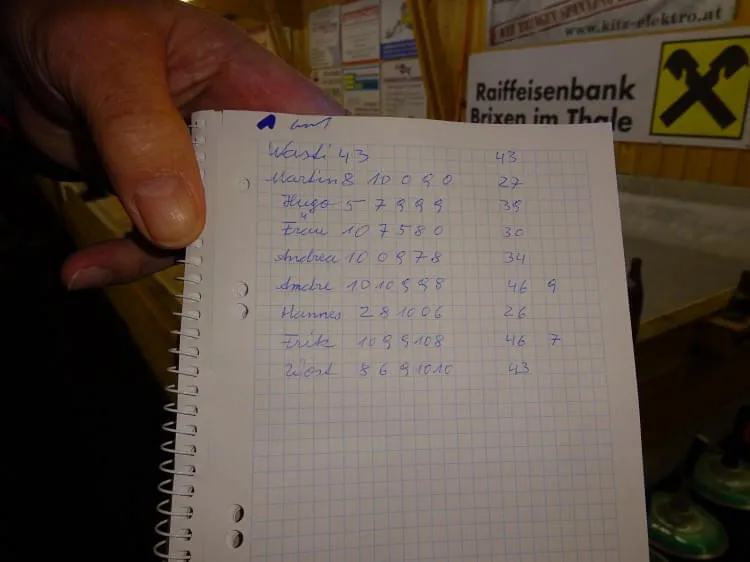 www.kitz-elektro.at
Raiffeisenbank
Brixen im Thale
Wasti 43 43
Martin 8 10 0 9 0 27
Hugo 5 7 9 9 9 39
Frau 10 7 5 8 0 30
Andrea 10 0 9 7 8 34
Andre 10 10 9 9 8 46 9
Hannes 2 8 10 0 6 26
Erik 10 9 9 10 8 46 7
Wast 8 6 9 10 10 43